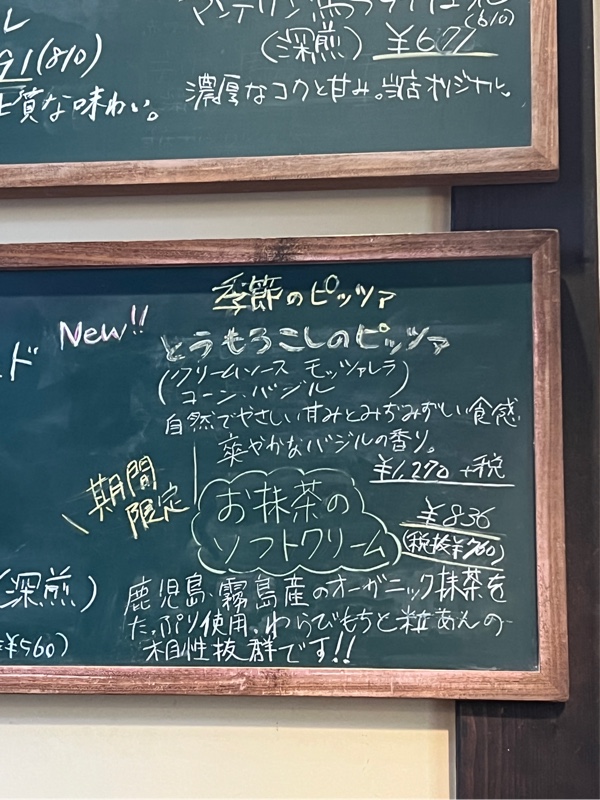 (810)
(610)
(深煎) ¥671
質な味わい。
濃厚なコクと甘み。当店オリジナル。
季節のピッツァ
New!!
とうもろこしのピッツァ
ド
(クリームソース モッツァレラ
コーン、バジル)
自然でやさしい甘みとみずみずしい食感
爽やかなバジルの香り。
¥1,270 +税
期間
限定
お抹茶の
ソフトクリーム
¥836
(税抜¥760)
(深煎)
¥560)
鹿児島、霧島産のオーガニック抹茶を
たっぷり使用、わらびもちと粒あんの
相性抜群です!!